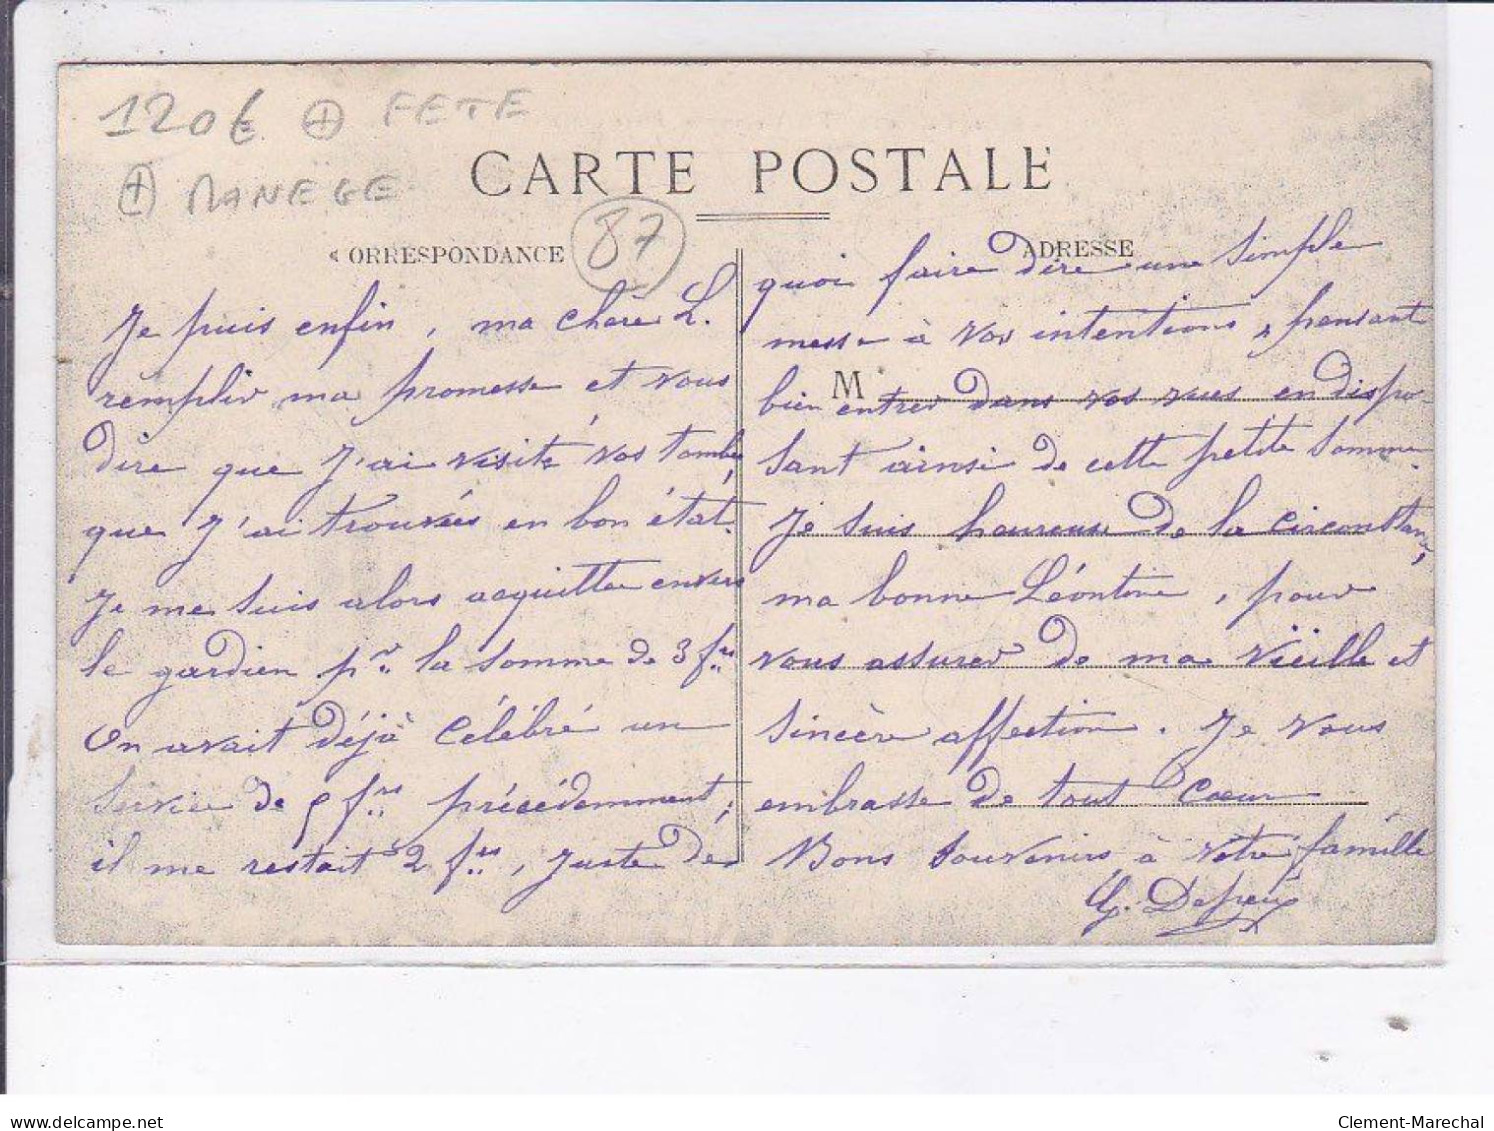 120€ + FETE
+ MANEGE
CARTE POSTALE
87
CORRESPONDANCE
ADRESSE
M
Je puis enfin, ma chère L.
remplir ma promesse et vous
dire que j'ai visité vos tombes,
que j'ai trouvées en bon état.
Je me suis alors acquittée envers
le gardien pr la somme de 3 frs
On avait déjà célébré un
service de 5 frs précédemment,
il me restait 2 frs, juste de
quoi faire dire une simple
messe à vos intentions, pensant
bien entrer dans vos vues en dispo
sant ainsi de cette petite somme.
Je suis heureuse de la circonstance,
ma bonne Léontine, pour
vous assurer de ma vieille et
sincère affection. Je vous
embrasse de tout cœur
Bons souvenirs à votre famille
delcampe.net
Clement-Marechal